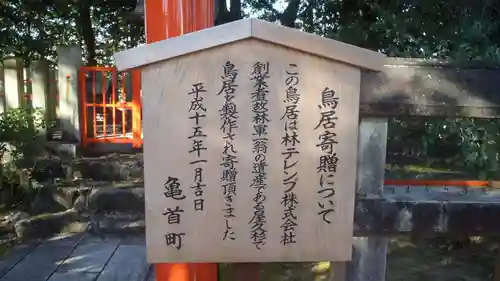 鳥居寄贈について
この鳥居は林テレンプ株式会社
創業者故林軍一翁の遺産である屋久杉で
鳥居を製作されて寄贈頂きました
平成十五年一月吉日
亀首町